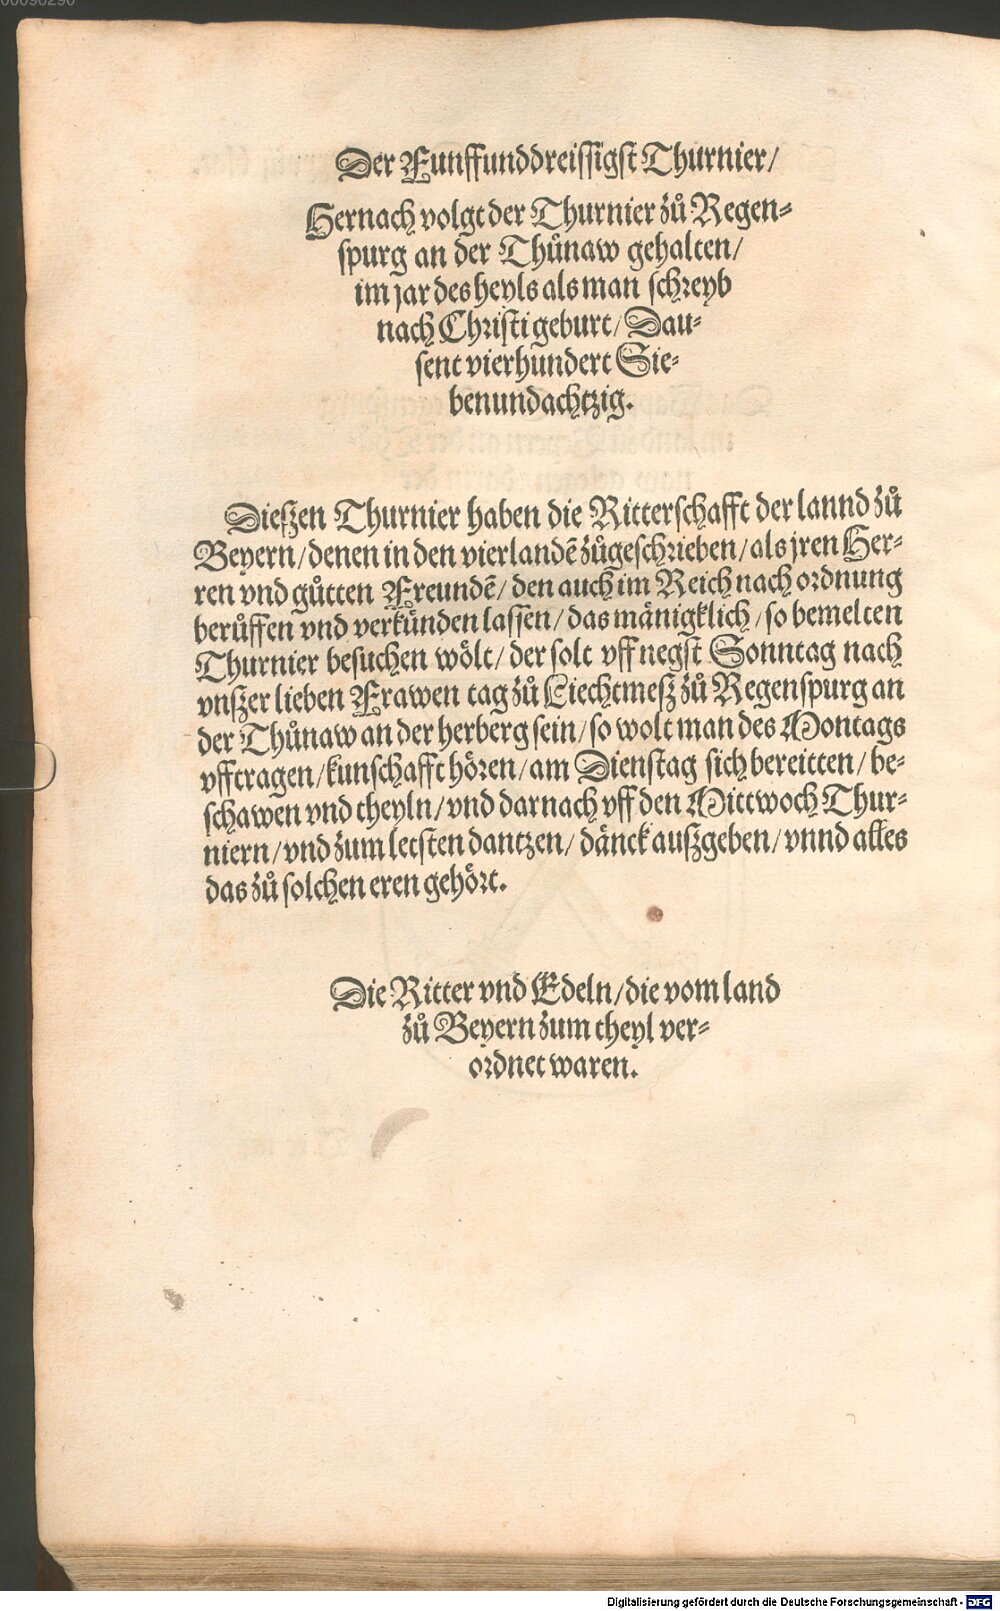 00090290
Der Funffunddreissigst Thurnier/
Hernach volgt der Thurnier zů Regen-
spurg an der Thůnaw gehalten/
im jar des heyls als man schreyb
nach Christi geburt/ Dau-
sent vierhundert Sie-
benundachtzig.
Dieszen Thurnier haben die Ritterschafft der lannd zů
Beyern/ denen in den vierlandē zůgeschrieben/ als jren Her-
ren vnd gůtten Freundē/ den auch im Reich nach ordnung
berůffen vnd verkünden lassen/ das mänigklich/ so bemelten
Thurnier besuchen wölt/ der solt vff negst Sonntag nach
vnszer lieben Frawen tag zů Liechtmesz zů Regenspurg an
der Thůnaw an der herberg sein/ so wolt man des Montags
vfftragen/ kunschafft hören/ am Dienstag sich bereitten/ be-
schawen vnd theyln/ vnd darnach vff den Mittwoch Thur-
niern/ vnd zum letsten dantzen/ dänck auszgeben/ vnnd alles
das zů solchen eren gehört.
Die Ritter vnd Edeln/ die vom land
zů Beyern zum theyl ver-
ordnet waren.
Digitalisierung gefördert durch die Deutsche Forschungsgemeinschaft - DFG